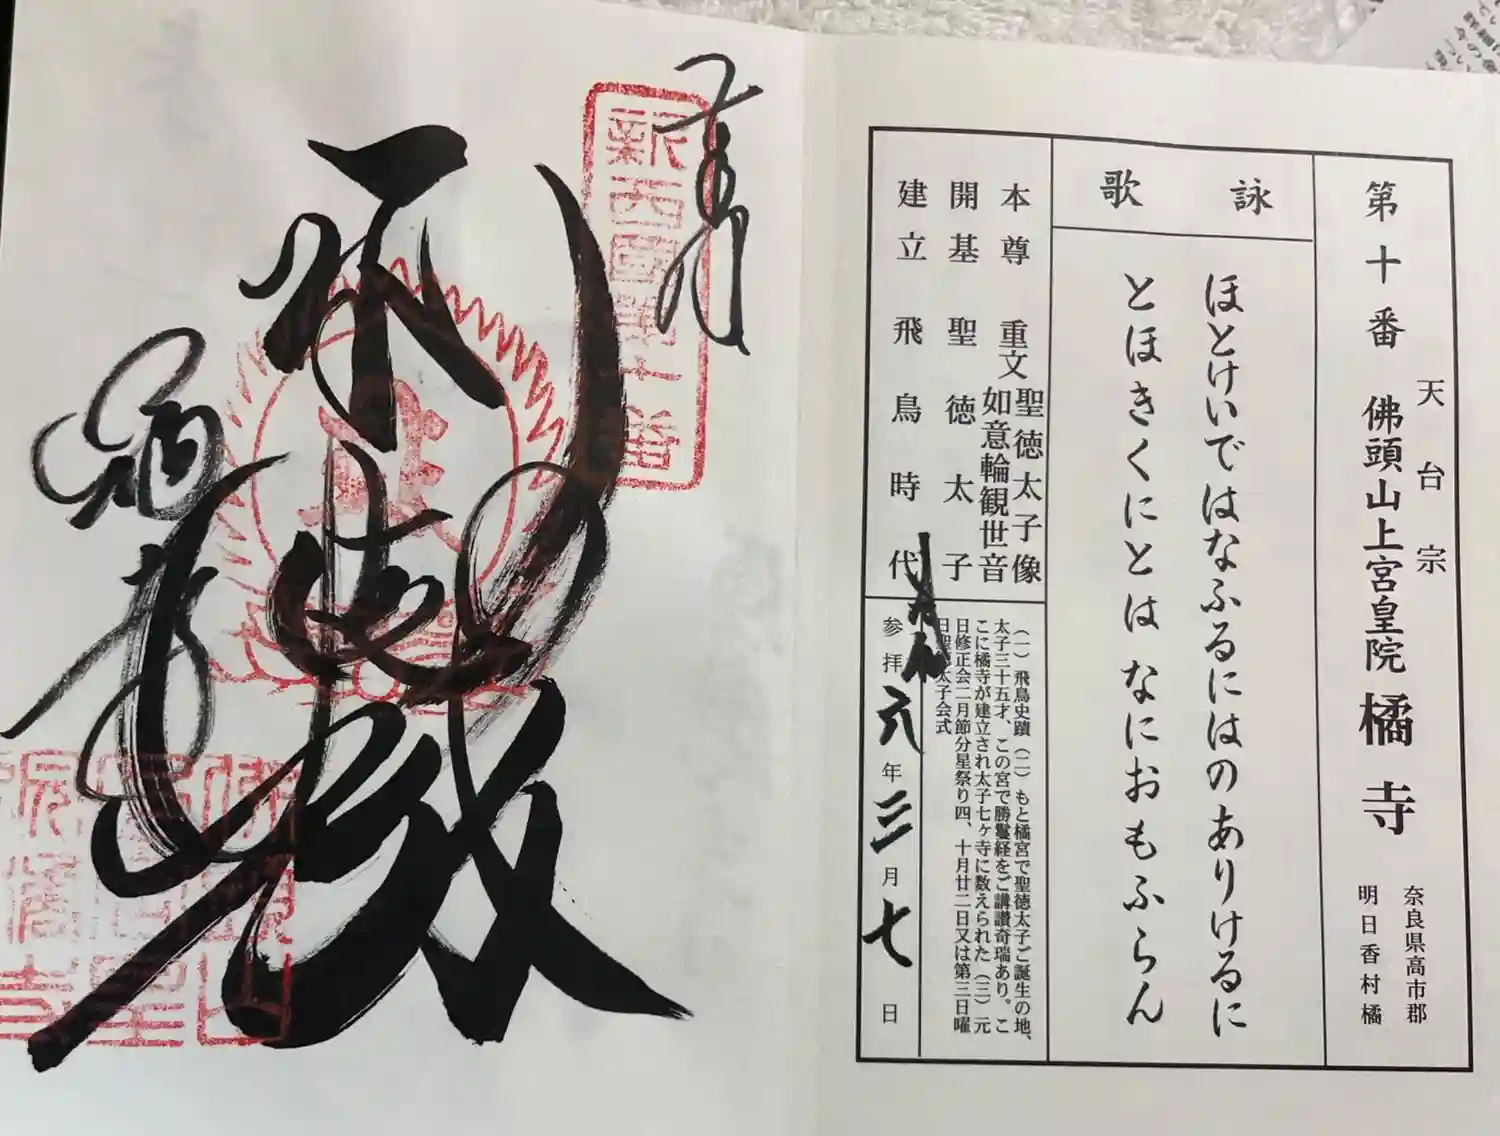 第十番
天台宗
佛頭山上宮皇院
橘寺
奈良県高市郡
明日香村橘
詠歌
ほとけいではなふるにはのありけるに
とほきくにとは なにおもふらん
本尊 重文 聖徳太子像
如意輪観世音
開基 聖徳太子
建立 飛鳥時代
(一)飛鳥史蹟(二)もと橘宮で聖徳太子ご誕生の地、
太子三十五才、この宮で勝鬘経をご講讃奇瑞あり。こ
こに橘寺が建立され太子七ヶ寺に数えられた(三)元
日修正会二月節分星祭り四、十月廿二日又は第三日曜
日聖徳太子会式
参拝 令和 六年三月七日
奉拝
新西國第十番
橘寺
佛頭山
上宮皇
院橘寺